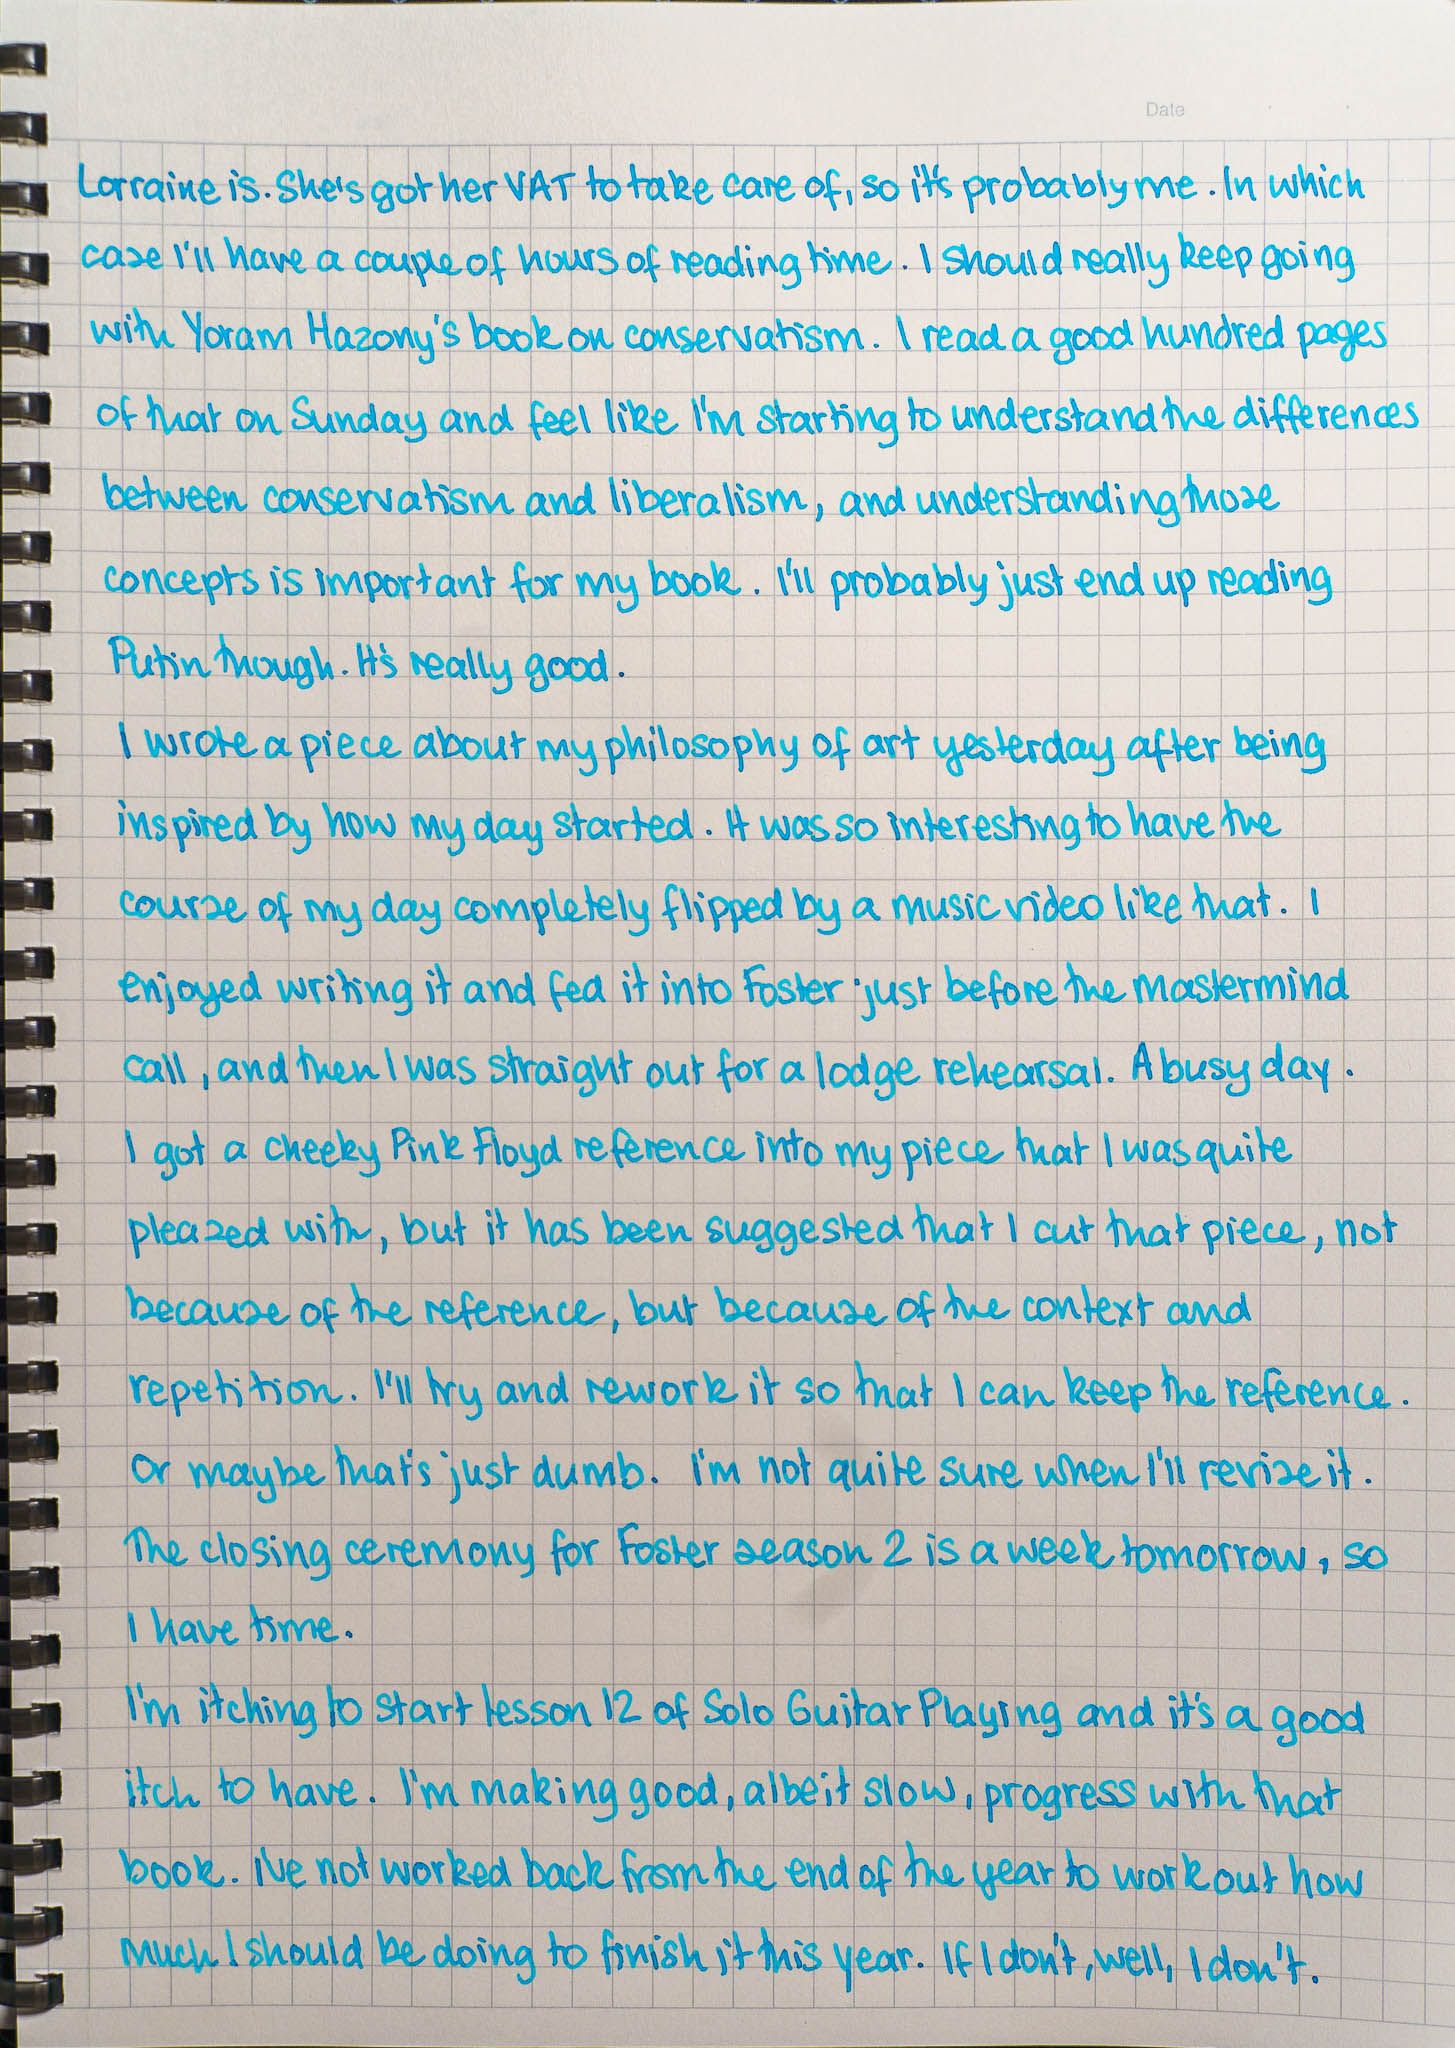 Date
Lorraine is. She's got her VAT to take care of, so it's probably me. In which
case I'll have a couple of hours of reading time. I should really keep going
with Yoram Hazony's book on conservatism. I read a good hundred pages
of that on Sunday and feel like I'm starting to understand the differences
between conservatism and liberalism, and understanding those
concepts is important for my book. I'll probably just end up reading
Putin though. It's really good.
I wrote a piece about my philosophy of art yesterday after being
inspired by how my day started. It was so interesting to have the
course of my day completely flipped by a music video like that. I
enjoyed writing it and fed it into Foster just before the mastermind
call, and then I was straight out for a lodge rehearsal. A busy day.
I got a cheeky Pink Floyd reference into my piece that I was quite
pleased with, but it has been suggested that I cut that piece, not
because of the reference, but because of the context and
repetition. I'll try and rework it so that I can keep the reference.
Or maybe that's just dumb. I'm not quite sure when I'll revise it.
The closing ceremony for Foster season 2 is a week tomorrow, so
I have time.
I'm itching to start lesson 12 of Solo Guitar Playing and it's a good
itch to have. I'm making good, albeit slow, progress with that
book. I've not worked back from the end of the year to work out how
much I should be doing to finish it this year. If I don't, well, I don't.